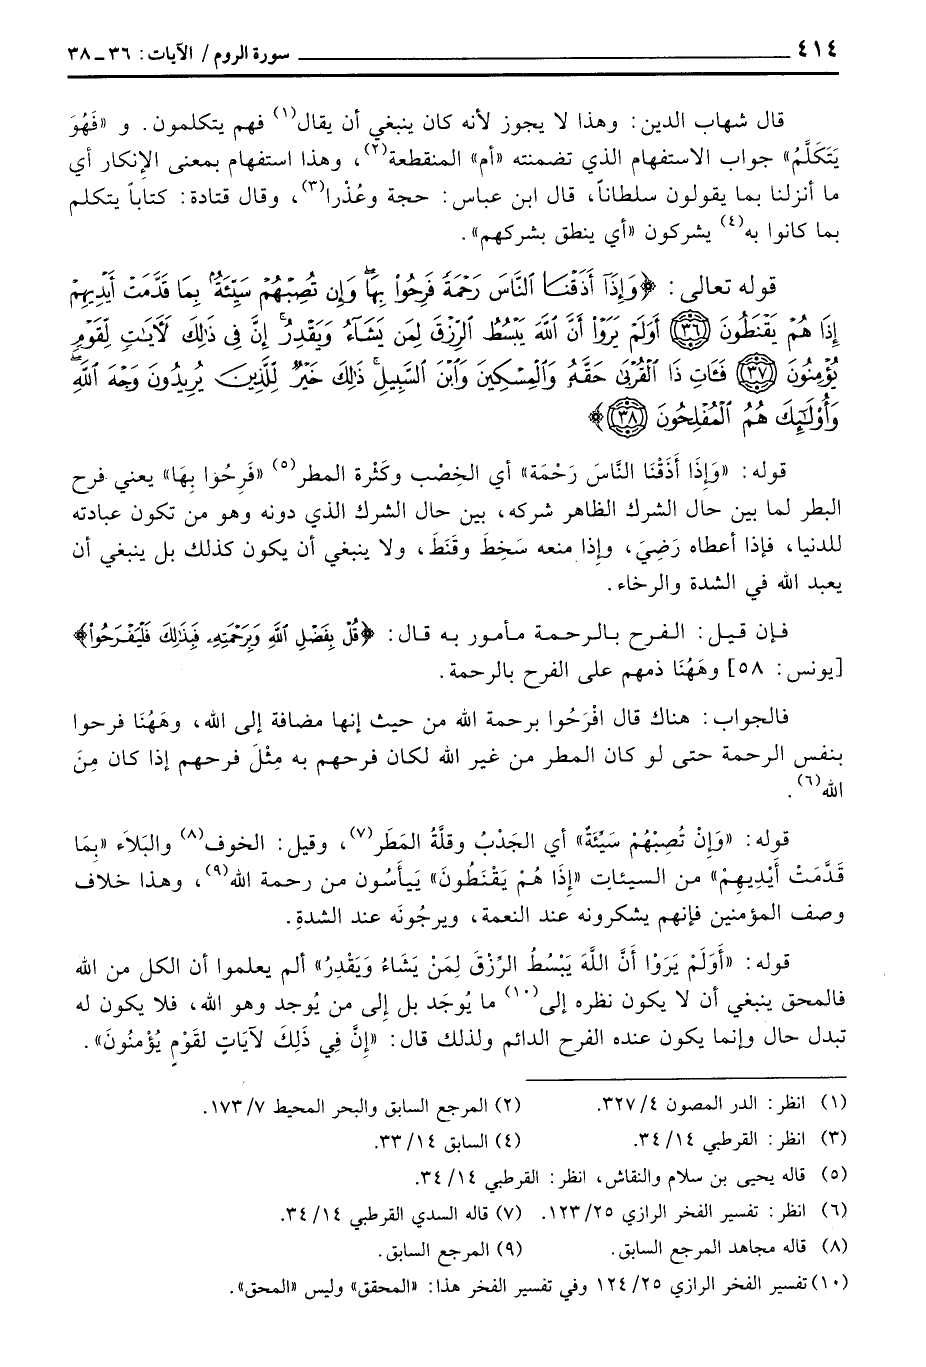 ٤١٤ سورة الروم / الآيات: ٣٦ ـ ٣٨
قال شهاب الدين: وهذا لا يجوز لأنه كان ينبغي أن يقال(١) فهم يتكلمون. و «فَهُوَ
يَتَكَلَّمُ» جواب الاستفهام الذي تضمنته «أم» المنقطعة(٢)، وهذا استفهام بمعنى الإنكار أي
ما أنزلنا بما يقولون سلطاناً، قال ابن عباس: حجة وعُذْرا(٣)، وقال قتادة: كتاباً يتكلم
بما كانوا به(٤) يشركون «أي ينطق بشركهم».
قوله تعالى: ﴿وَإِذَآ أَذَقْنَا ٱلنَّاسَ رَحْمَةً فَرِحُوا۟ بِهَا ۖ وَإِن تُصِبْهُمْ سَيِّئَةٌۢ بِمَا قَدَّمَتْ أَيْدِيهِمْ
إِذَا هُمْ يَقْنَطُونَ ٣٦ أَوَلَمْ يَرَوْا۟ أَنَّ ٱللَّهَ يَبْسُطُ ٱلرِّزْقَ لِمَن يَشَآءُ وَيَقْدِرُ ۚ إِنَّ فِى ذَٰلِكَ لَءَايَٰتٍ لِّقَوْمٍ
يُؤْمِنُونَ ٣٧ فَـَٔاتِ ذَا ٱلْقُرْبَىٰ حَقَّهُۥ وَٱلْمِسْكِينَ وَٱبْنَ ٱلسَّبِيلِ ۚ ذَٰلِكَ خَيْرٌ لِّلَّذِينَ يُرِيدُونَ وَجْهَ ٱللَّهِ ۖ
وَأُو۟لَٰٓئِكَ هُمُ ٱلْمُفْلِحُونَ ٣٨﴾
قوله: «وَإِذَا أَذَقْنَا النَّاسَ رَحْمَة» أي الخِصْب وكَثْرة المطر(٥) «فَرِحُوا بِهَا» يعني فرح
البطر لما بين حال الشرك الظاهر شركه، بين حال الشرك الذي دونه وهو من تكون عبادته
للدنيا، فإذا أعطاه رَضِيَ، وإذا منعه سَخِطَ وقَنَطَ، ولا ينبغي أن يكون كذلك بل ينبغي أن
يعبد الله في الشدة والرخاء.
فإن قيل: الفرح بالرحمة مأمور به قال: ﴿قُلْ بِفَضْلِ ٱللَّهِ وَبِرَحْمَتِهِۦ فَبِذَٰلِكَ فَلْيَفْرَحُوا۟﴾
[يونس: ٥٨] وهَهُنَا ذمهم على الفرح بالرحمة.
فالجواب: هناك قال افْرَحُوا برحمة الله من حيث إنها مضافة إلى الله، وهَهُنَا فرحوا
بنفس الرحمة حتى لو كان المطر من غير الله لكان فرحهم به مِثْلَ فرحهم إذا كان مِنَ
الله(٦).
قوله: «وَإِنْ تُصِبْهُمْ سَيِّئَةٌ» أي الجَدْبُ وقلَّةُ المَطَر(٧)، وقيل: الخوف(٨) والبَلاَء «بِمَا
قَدَّمَتْ أَيْدِيهِمْ» من السيئات «إِذَا هُمْ يَقْنَطُونَ» يَيأَسُون من رحمة الله(٩)، وهذا خلاف
وصف المؤمنين فإنهم يشكرونه عند النعمة، ويرجُونَه عند الشدةِ.
قوله: «أَوَلَمْ يَرَوْا أَنَّ اللَّهَ يَبْسُطُ الرِّزْقَ لِمَنْ يَشَاءُ وَيَقْدِرُ» ألم يعلموا أن الكل من الله
فالمحق ينبغي أن لا يكون نظره إلى(١٠) ما يُوجَد بل إلى من يُوجد وهو الله، فلا يكون له
تبدل حال وإنما يكون عنده الفرح الدائم ولذلك قال: «إِنَّ فِي ذَلِكَ لآيَاتٍ لقَوْمٍ يُؤْمنُونَ».
(١) انظر: الدر المصون ٤/ ٣٢٧. (٢) المرجع السابق والبحر المحيط ٧/ ١٧٣.
(٣) انظر: القرطبي ١٤/ ٣٤. (٤) السابق ١٤/ ٣٣.
(٥) قاله يحيى بن سلام والنقاش، انظر: القرطبي ١٤/ ٣٤.
(٦) انظر: تفسير الفخر الرازي ٢٥/ ١٢٣. (٧) قاله السدي القرطبي ١٤/ ٣٤.
(٨) قاله مجاهد المرجع السابق. (٩) المرجع السابق.
(١٠) تفسير الفخر الرازي ٢٥/ ١٢٤ وفي تفسير الفخر هذا: «المحقق» وليس «المحق».